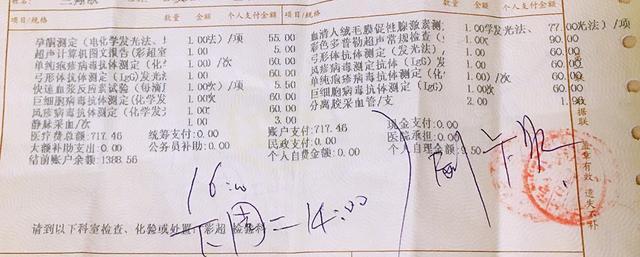 项目/规格 数量 金额 个人支付金额 项目/规格 数量 金额 个人支付金额
孕酮测定(电化学发光法、 1.00法)/项 55.00 血清人绒毛膜促性腺激素测 1.00学发光法、 77.00光法)/项
超声计算机图文报告(彩超室 1.00 5.00 彩色多普勒超声常规检查( 1.00 90.00
单纯疱疹病毒抗体测定(化 1.00)/次 60.00 弓形体抗体测定(发光法) 1.00 60.00
弓形体抗体测定(IgG)发光 1.00 60.00 风疹病毒抗体测定(IgG) 1.00 60.00
快速血浆反应素试验(每滴 1.00 5.50 单纯疱疹病毒抗体测定(化 1.00 60.00
巨细胞病毒抗体测定(化学发 1.00次 60.00 巨细胞病毒抗体测定(化学发 1.00次 60.00
风疹病毒抗体测定(化学发 1.00 60.00 分离胶采血管/支 2.00
静脉采血/次 1.00 3.00
医疗费总额:717.46 统筹支付:0.00 账户支付:717.46 现金支付:0.00
大额补助支出:0.00 公务员补助:0.00 民政支付:0.00 医院承担:0.00
结前账户余额:1388.56 个人自费金额:0.00 个人自理金额:9.50
据联
盖章有效 遗失不补
16:00
下周二 14:00
请到以下科室检查、化验或处置:彩超 检验科